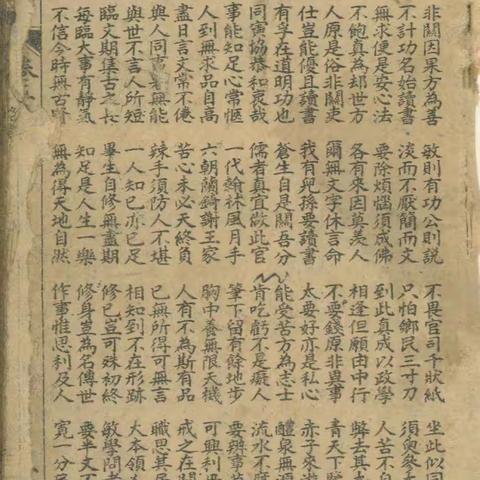 非關因果方為善
不計功名始讀書
無求便是安心法
不飽真為却世方
人原是俗非關吏
仕豈能優且讀書
有孚在道明功也
同寅協恭和衷哉
事能知足心常愜
人到無求品自高
盡日言文常不倦
與人同事若無能
與世不言人所短
臨文期集古之長
每臨大事有靜氣
不信今時無古賢
敏則有功公則說
淡而不厭簡而文
要除煩惱須成佛
各有來因莫羨人
爾無文字休言命
我有兒孫要讀書
蒼生自是關吾分
儒者真宜做此官
一代翰林風月手
六朝蘭錡謝王家
苦心未必天終負
辣手須防人不堪
一人知己亦已足
畢生自修無盡期
知足是人生一樂
無為得天地自然
不畏官司千狀紙
只怕鄉民三寸刀
到此真成以政學
相逢但願由中行
不要錢原非異事
太要好亦是私心
能受苦方為志士
肯吃虧不是癡人
筆下留有餘地步
胸中養無限天機
人有不為斯有品
己無所得可無言
相知到不在形跡
修己豈可殊初終
修身豈為名傳世
作事惟思利及人
坐此似同
須臾參
人苦不自
弊去其
青天下
赤子來
醴泉無源
流水不
要辦事
可興利
戒之在
職思其居
大本領
敏學問
要半文不
寬一分民